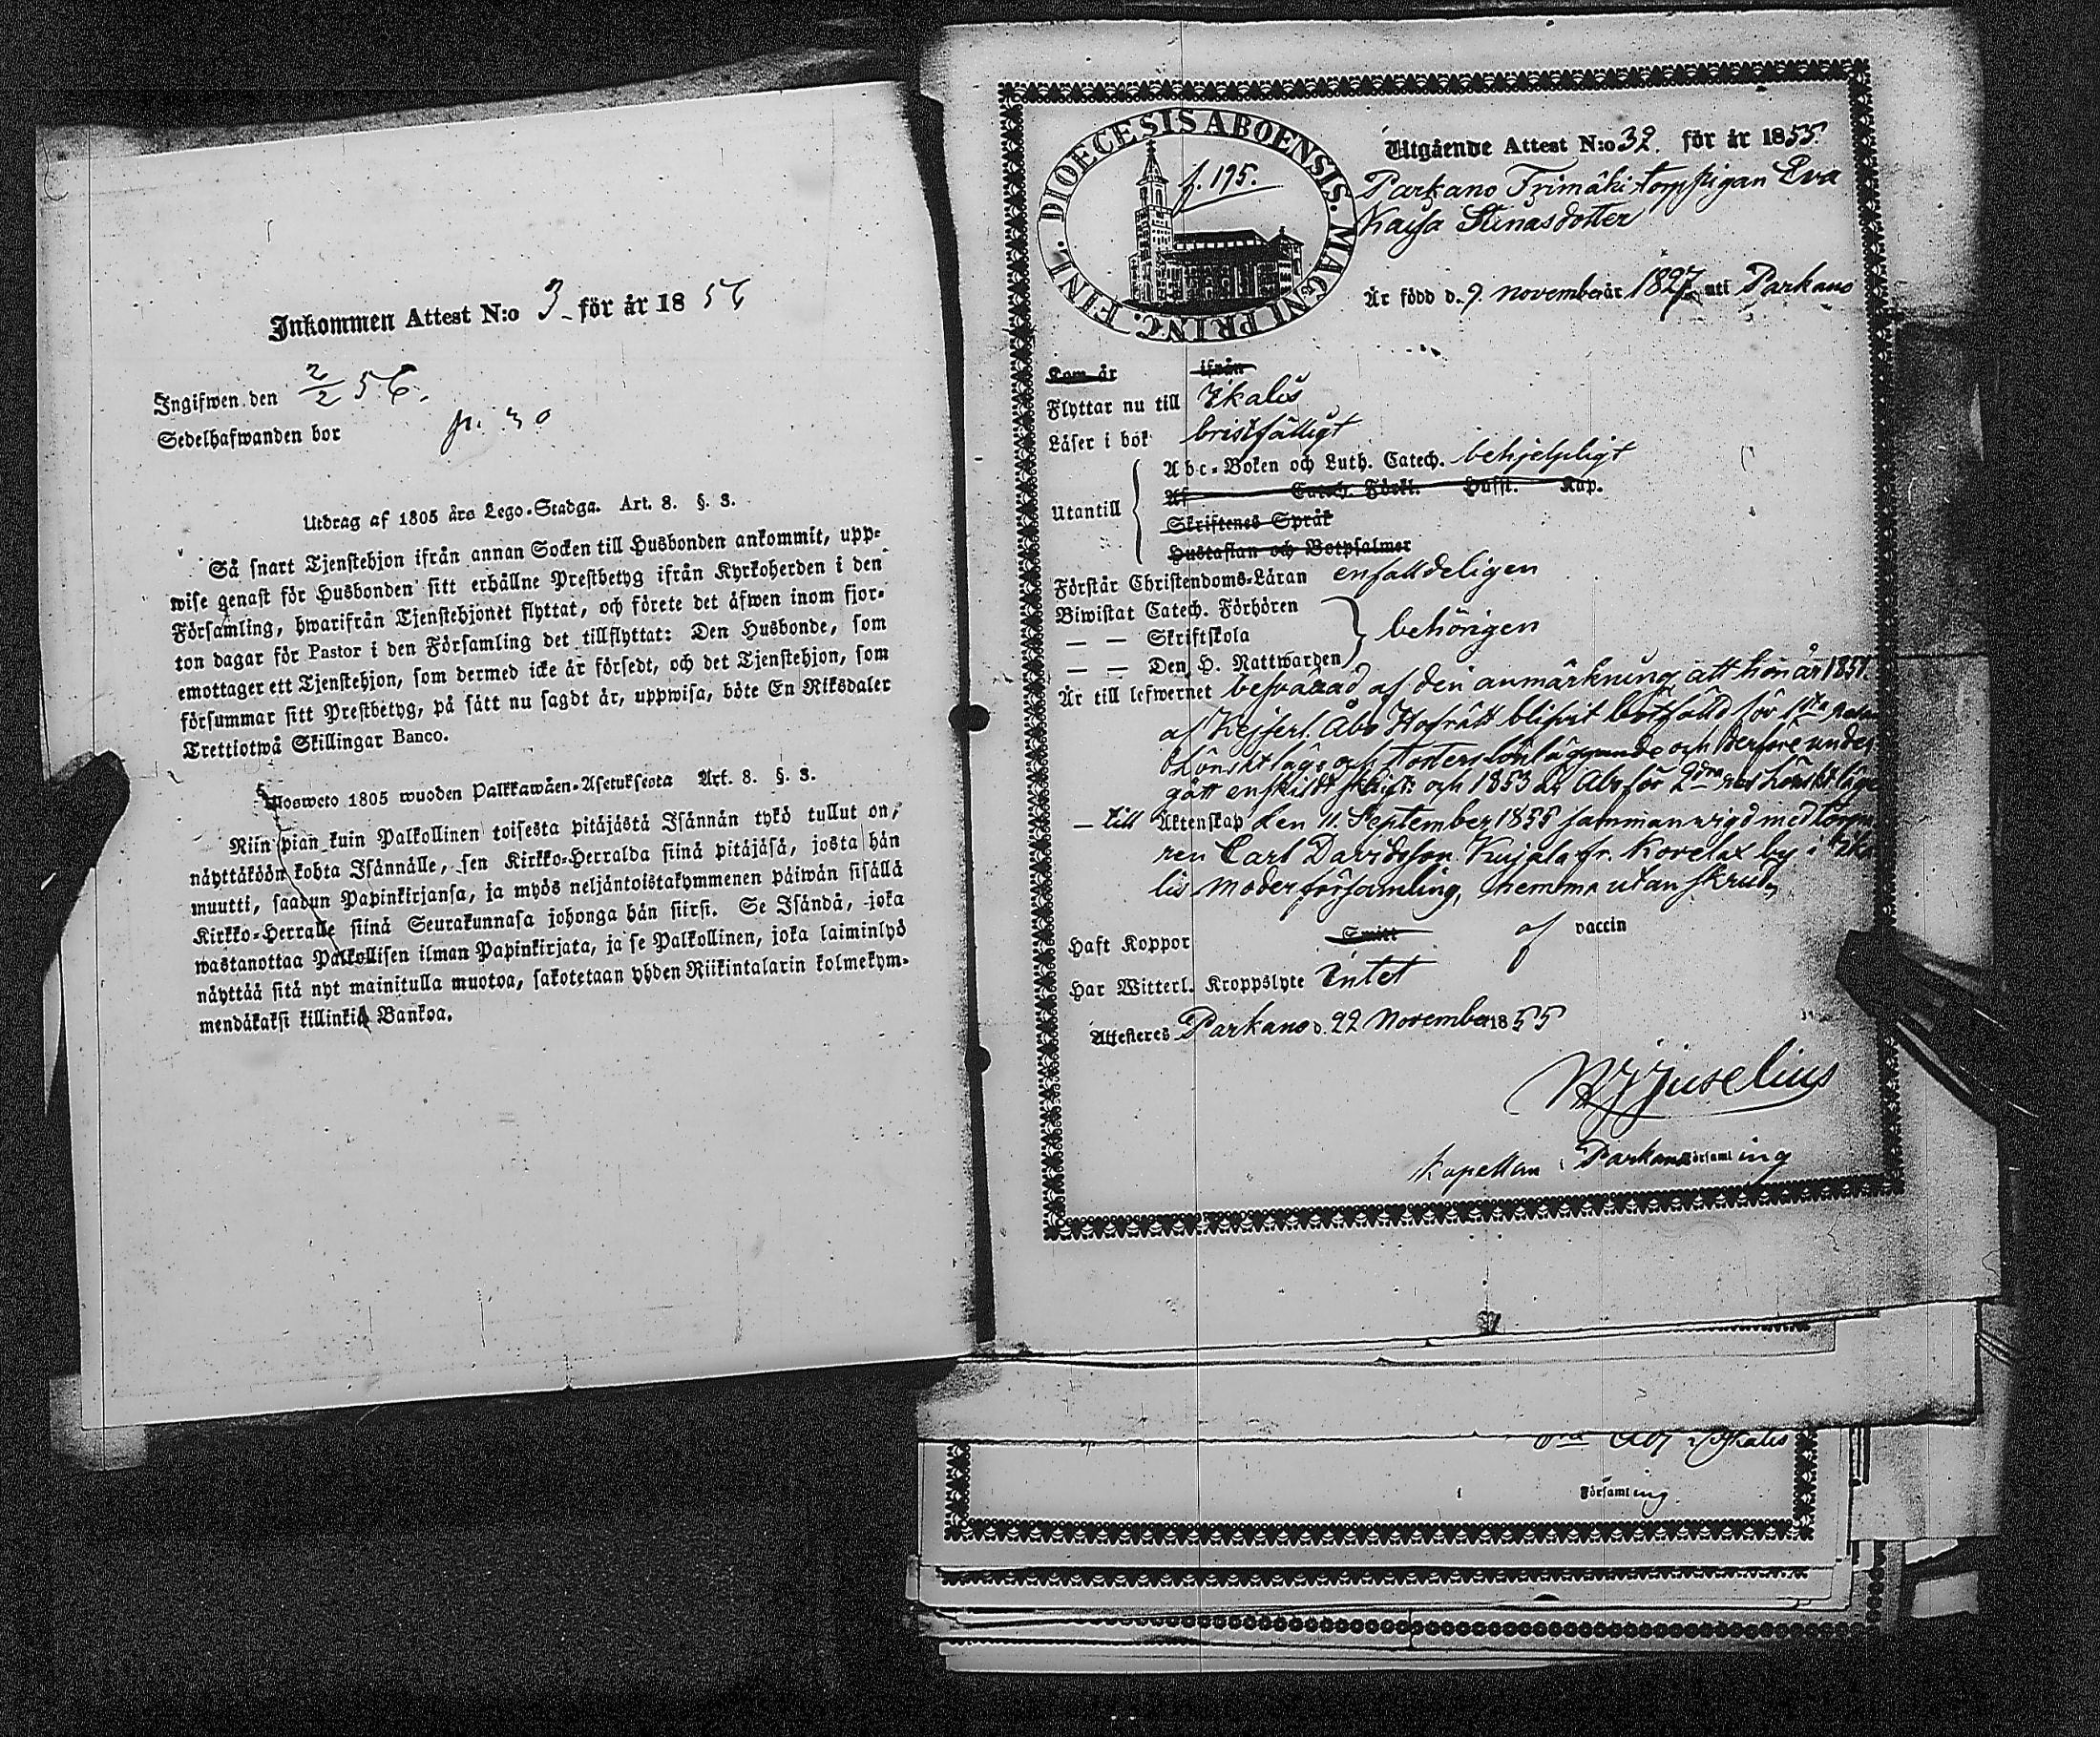 Inkommen Attest N:o 3 för år 1856
Ingifwen den 2/2 56.
Sedelhafwanden bor p. 30
Utdrag af 1805 års Lego-Stadga. Art. 8. §. 3.
Så snart Tjenstehjon ifrån annan Socken till Husbonden ankommit, upp-
wise genast för Husbonden sitt erhållne Prestbetyg ifrån Kyrkoherden i den
Församling, hwarifrån Tjenstehjonet flyttat, och förete det äfwen inom fjor-
ton dagar för Pastor i den Församling det tillflyttat: Den Husbonde, som
emottager ett Tjenstehjon, som dermed icke är försedt, och det Tjenstehjon, som
försummar sitt Prestbetyg, på sätt nu sagdt är, uppwisa, böte En Riksdaler
Trettiotwå Skillingar Banco.
Ulosweto 1805 wuoden Palkkawäen-Asetuksesta Art. 8. §. 3.
Niin pian kuin Palkollinen toisesta pitäjästä Isännän tykö tullut on,
näyttäköön kohta Isännälle, sen Kirkko-Herralda siinä pitäjäsä, josta hän
muutti, saadun Papinkirjansa, ja myös neljäntoistakymmenen päiwän sisällä
Kirkko-Herralle siinä Seurakunnasa johonga hän siirsi. Se Isändä, joka
wastanottaa Palkollisen ilman Papinkirjata, ja se Palkollinen, joka laiminlyö
näyttää sitä nyt mainitulla muotoa, sakotetaan yhden Riikintalarin kolmekym-
mendäkaksi killinkiä Bankoa.
DIOECESIS ABOENSIS. MAGNI PRINC. FINL.
f. 195.
Utgående Attest N:o 32. för år 1855.
Parkano torppigan Eva
Kaisa Stinasdotter
Är född d. 9. november år 1827 uti Parkano
Kom år ifrån
Flyttar nu till Ikalis
Läser i bok bristfälligt
Utantill
Abc-Boken och Luth. Catech. behjelpligt
Af Catech. Förkl. Hufst. Kap.
Skriftenes Språk
Hustaflan och Botpsalmer
Förstår Christendoms-Läran enfalldeligen
Biwistat Catech. Förhören
— — Skriftskola behörigen
— — Den H. Nattwarden
Är till lefwernet besvärad af den anmärkning att hon år 1851.
af Kejserl. Åbo Hofrätt blifvit botfälld för 1sta resan
och derföre under
gått enskildt skrift och 1853 för 2dra
— till Äktenskap den 11. September 1855 samman wigd med torpa
ren Carl Davidsson Kujala fr. Kovelax by i Ika
lis moderförsamling, hemma utan skrud.
Haft Koppor Smitt af vaccin
Har Witterl. Kroppslyte Intet
Attesteres Parkano d. 22 November 1855
Juselius
Kapellan i Parkano Församling
Ikalis
i Församling